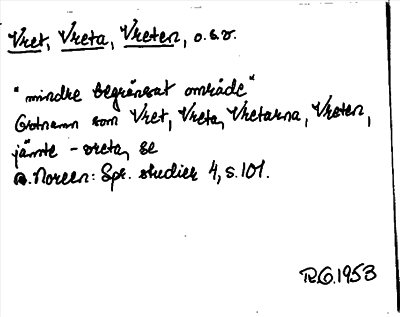 Vret, Vreta, Vreten, o.s.v.
"mindre begränsat område"
Ortnamn som Vret, Vreta, Vretarna, Vreten,
jämte -vreta, se
A. Noreen: Spr. studier 4, s. 101.
R.G. 1953